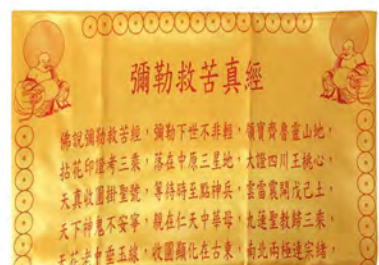 彌勒救苦真經
佛說彌勒救苦經，彌勒下世不非輕，領寶齊魯靈山地，
拈花印證考三乘，落在中原三星地，大證四川王桃心，
天真收圓掛聖號，等待時至點神兵，雲雷震開戊己土，
天下神鬼不安寧，親在仁天中華母，九蓮聖教歸三乘，
天花老中垂玉線，收圓顯化在古東，南北兩極連宗緒，